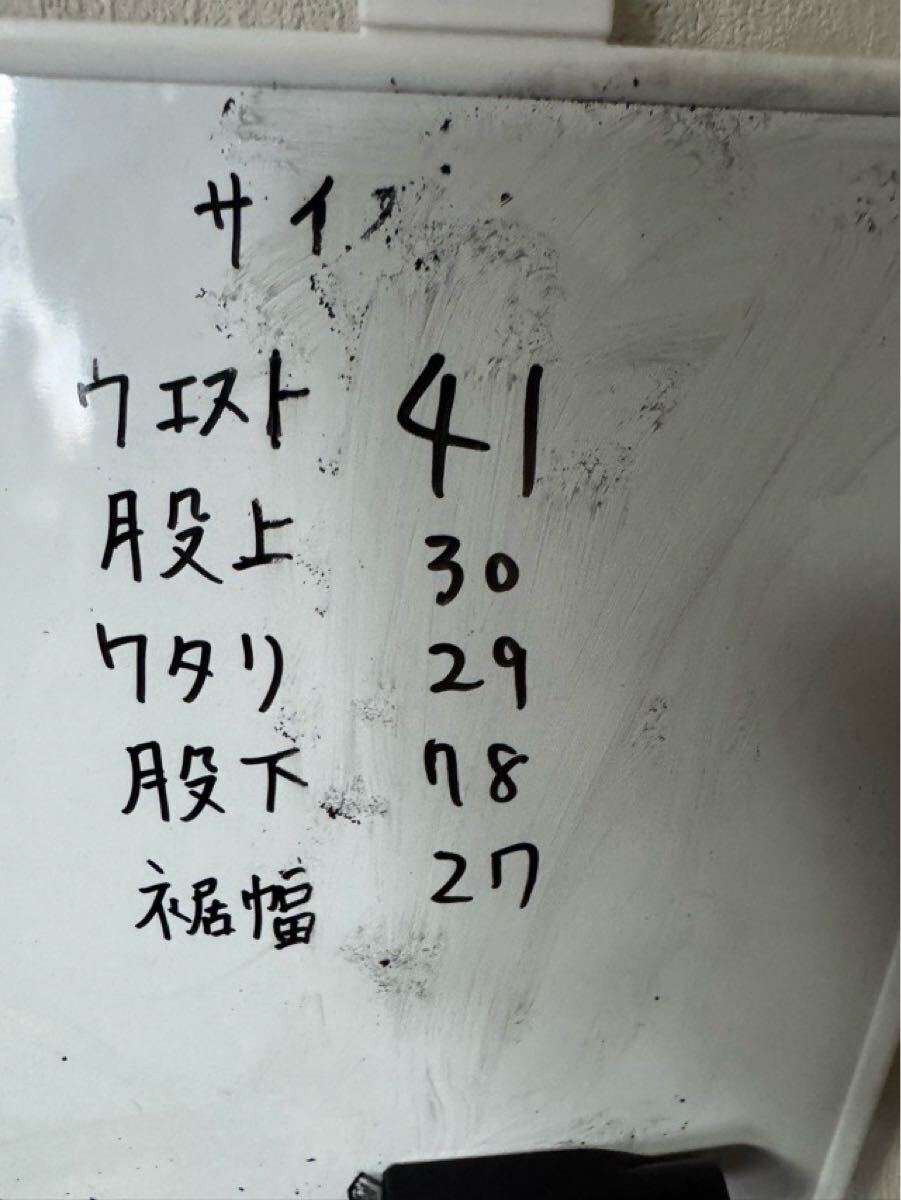 サイズ
ウエスト 41
股上 30
ワタリ 29
股下 78
裾幅 27